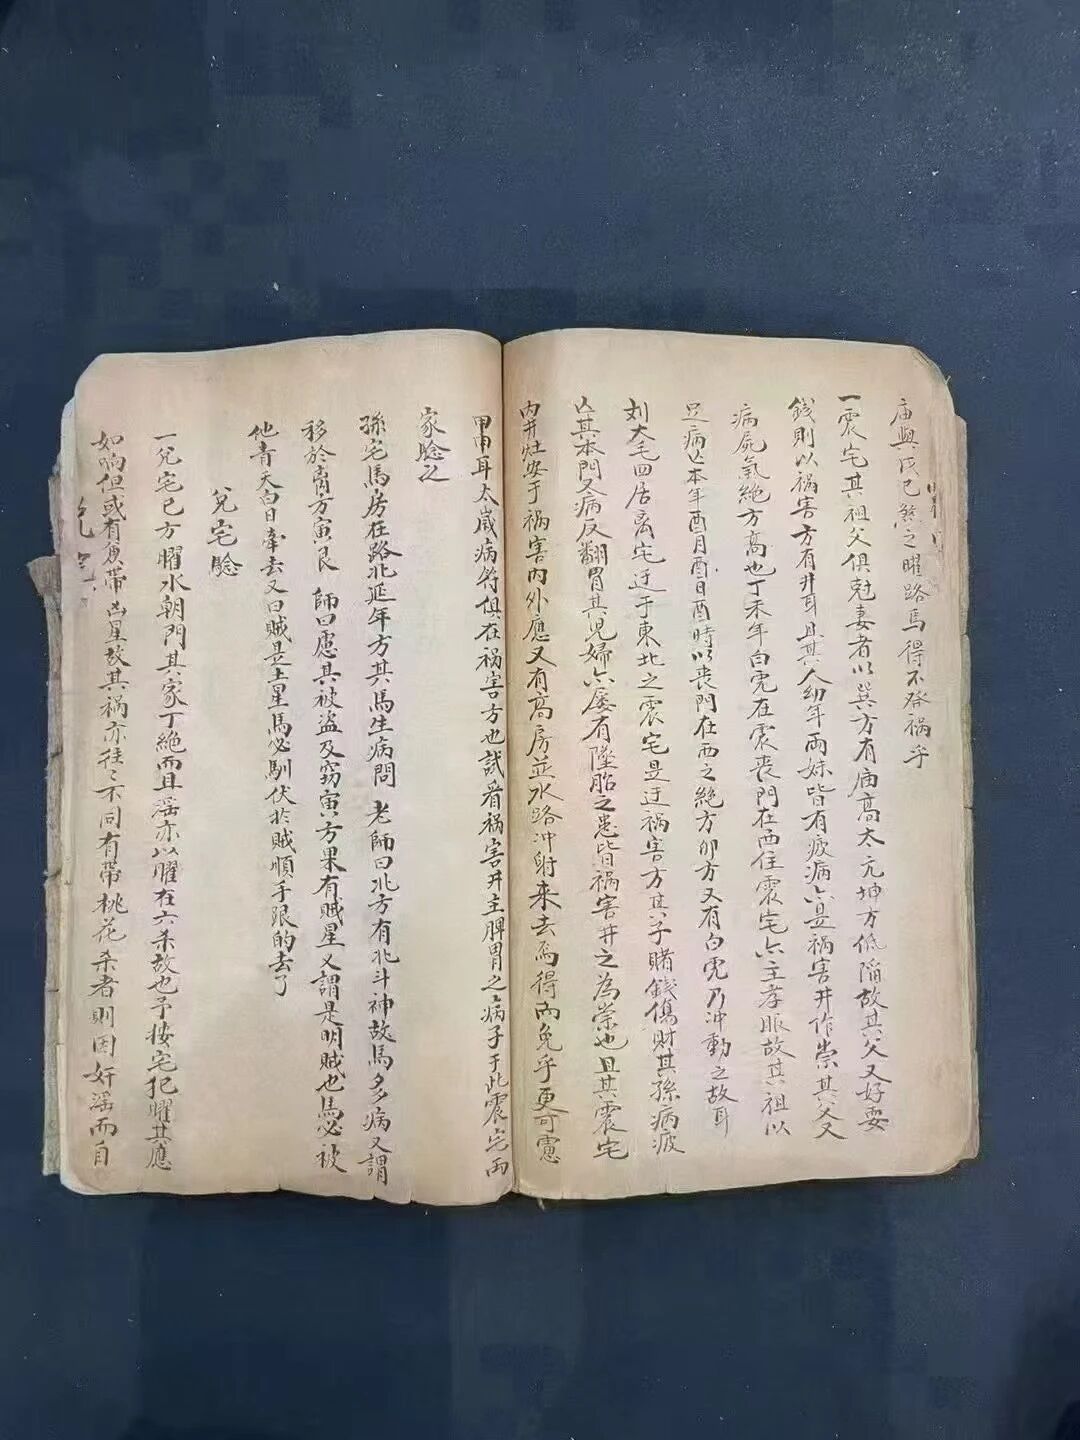 庙與戊己煞之曜路焉得不发祸乎
一震宅其祖父俱尅妻者以巽方有庙高太亢坤方低陷故其父又好耍
錢則以禍害方有井耳且其人幼年両妹皆有疲病亦是禍害井作祟其父又
病屍氣絶方高也丁未年白虎在震喪門在西住震宅亦主孝服故其祖以
足病亡本年酉月酉日酉時以丧門在西之絶方卯方又有白虎乃冲動之故耳
刘大毛四居离宅迁于東北之震宅是迁禍害方其子賭錢傷財其孫病疲
亡其本門又病反翻胃其児婦亦屡有墜胎之患皆禍害井之為祟也且其震宅
内井灶安于禍害内外應又有高房並水路冲射来去焉得而免乎更可慮
甲申耳太嵗病符俱在禍害方也試看禍害井主脾胃之病子于此震宅両
家驗之
孫宅馬房在路北延年方其馬生病問 老師曰北方有北斗神故馬多病又謂
移於寅方寅艮 師曰慮其被盗及窃寅方果有賊星又謂是明賊也馬必被
他青天白日牽去又曰賊是土星馬必馴伏於賊順手跟的去了
兌宅驗
一兌宅巳方曜水朝門其家丁絶而且滛亦以曜在六杀故也予按宅犯曜其應
如响但或有兼帶凶星故其祸亦往々不同有帶桃花杀者則因奸滛而自